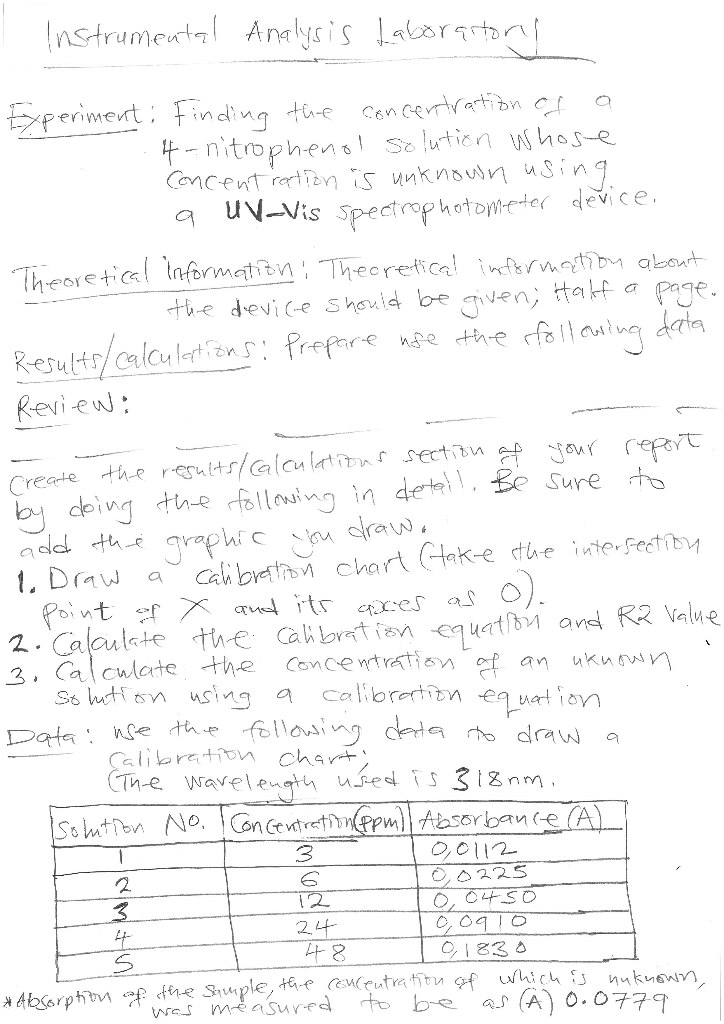 Instrumental Analysis Laboratory
Experiment: Finding the concentration of a
4-nitrophenol solution whose
concentration is unknown using
a UV-Vis spectrophotometer device.
Theoretical information: Theoretical information about
the device should be given; Half a page.
Results/calculations: Prepare use the following data
Review:
Create the results/calculations section of your report
by doing the following in detail. Be sure to
add the graphic you draw.
1. Draw a calibration chart (take the intersection
point of X and its axes as 0).
2. Calculate the calibration equation and R2 value
3. Calculate the concentration of an uknown
solution using a calibration equation
Data: use the following data to draw a
calibration chart;
(The wavelength used is 318nm.
Solution No. Concentration(ppm) Absorbance (A)
1 3 0,0112
2 6 0,0225
3 12 0,0450
4 24 0,0910
5 48 0,1830
*Absorption of the sample, the concentration of which is unknown,
was measured to be as (A) 0.0779